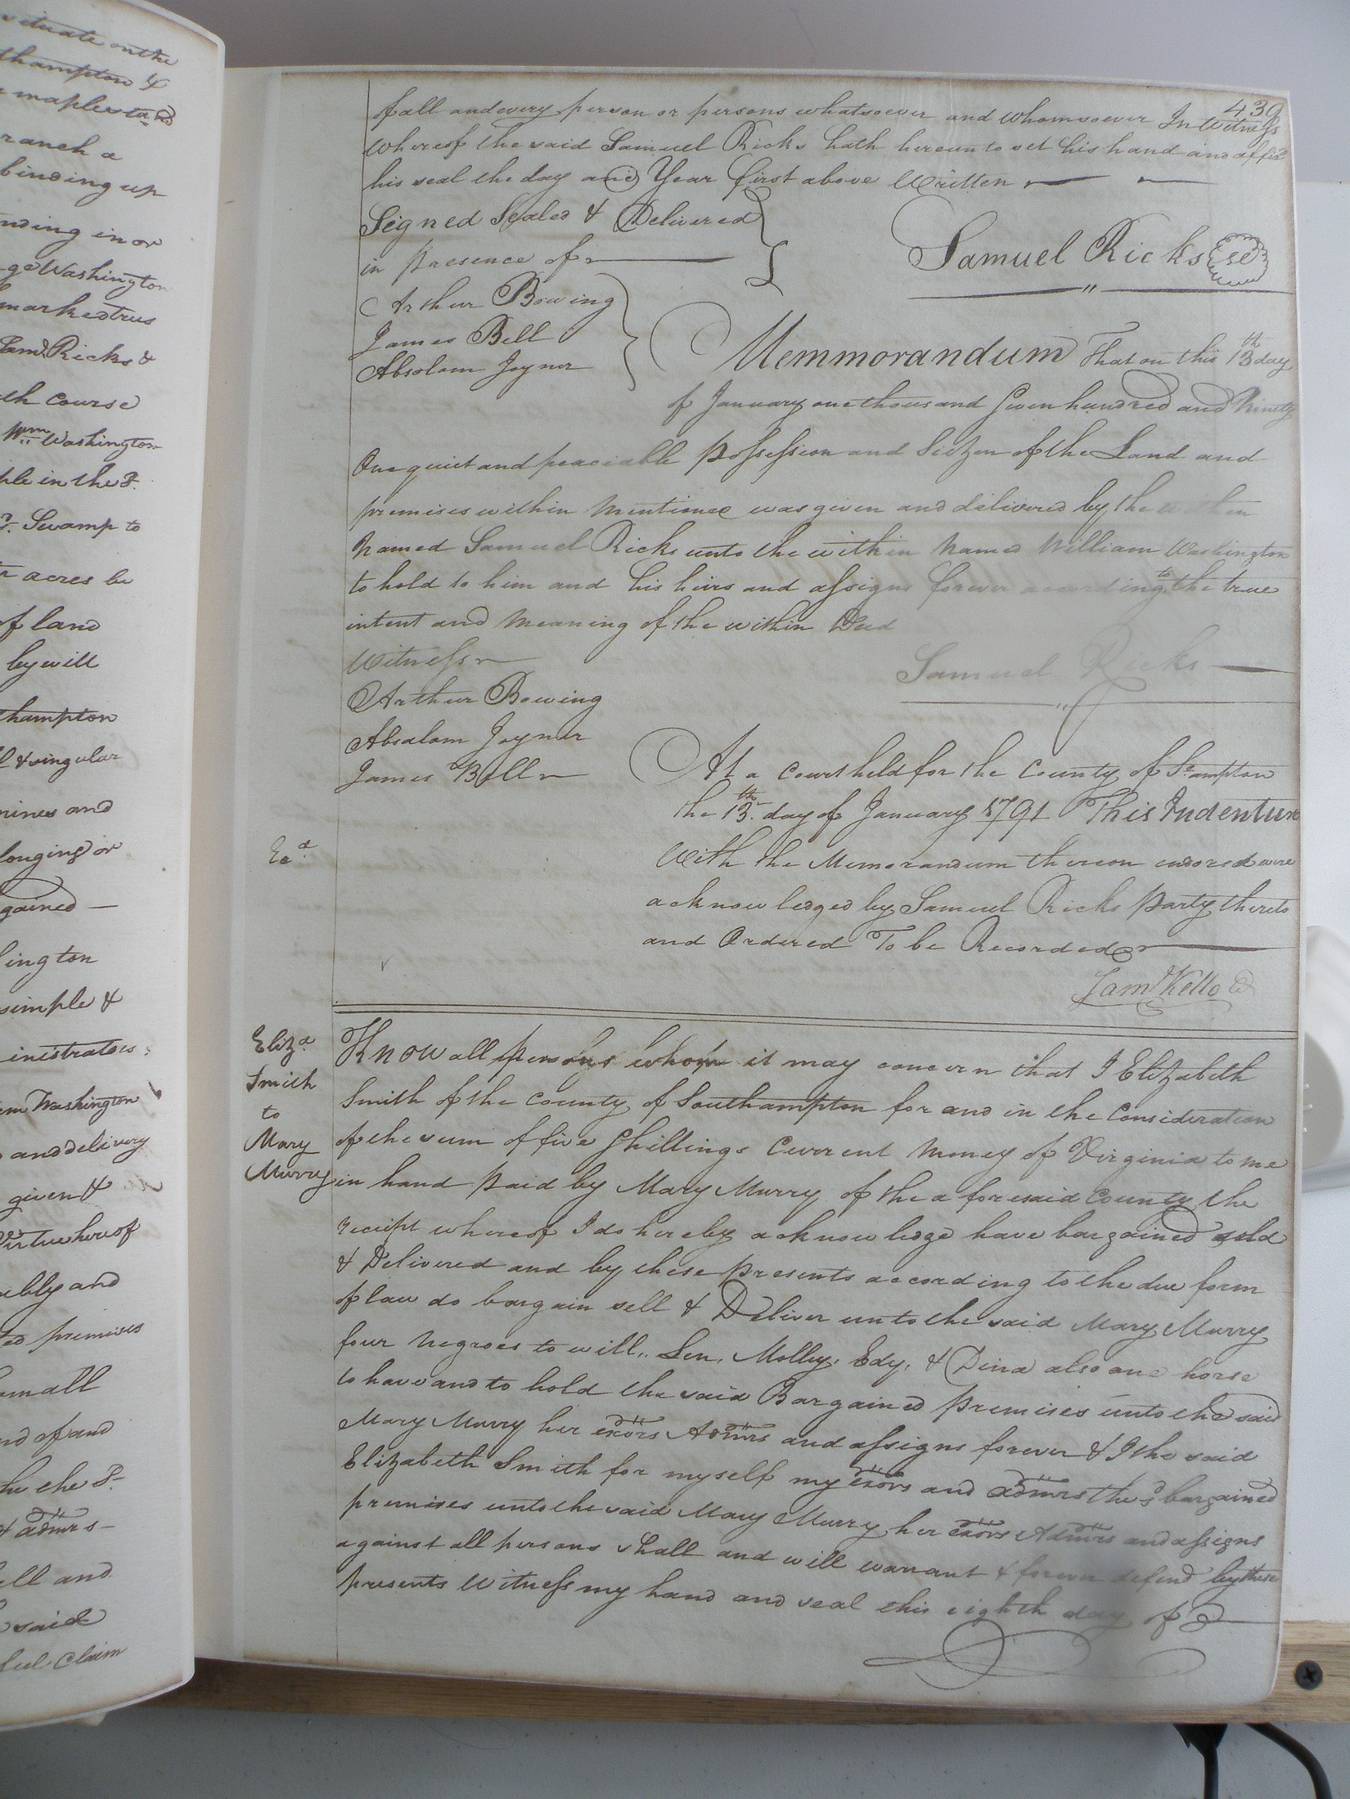 situate on the
thampton &
maple stand
ranch a
binding up
nding in or
ge Washington
marked trees
Saml. Ricks &
th course
Wm Washington
ple in the P.
Swamp to
acres be
of land
by will
thampton
& singular
mines and
longing or
gained —
ington
simple &
inistrators
am Washington
and delivery
given &
virtue hereof
ably and
ted premises
small
nd of and
he the P.
& admrs –
ell and
said
ful Claim
439
of all and every person or persons whatsoever and whomsoever In Witness
Whereof the said Samuel Ricks hath hereunto set his hand and affix'd
his seal the day and Year first above Written
Signed Sealed & Delivered
in presence of
Samuel Ricks
Arthur Bowing
James Bell
Absolom Joyner
Memmorandum That on this 13th day
of January one thousand Seven hundred and Ninety
One quiet and peaciable possession and Siezen of the Land and
premises within Mentioned was given and delivered by the within
Named Samuel Ricks unto the within Named William Washington
to hold to him and his heirs and assigns forever according to the true
intent and Meaning of the within Deed
Witness
Samuel Ricks
Arthur Bowing
Absalom Joyner
James Bell
At a Court held for the County of So.ampton
the 13th. day of January 1791 This Indenture
With the Memorandum thereon endorsed were
acknowledged by Samuel Ricks party thereto
and Ordered To be Recorded
Saml Kello
Exd
Eliza
Smith
to
Mary
Murry
Know all persons whom it may concern that I Elizabeth
Smith of the County of Southampton for and in the Consideration
of the sum of five Shillings Current Money of Virginia to me
in hand paid by Mary Murry of the aforesaid County the
receipt whereof I do hereby acknowledge have bargained sold
& Delivered and by these presents according to the due form
of law do bargain sell & Deliver unto the said Mary Murry
four Negroes to will, Sen, Molley, Edy, & Dina also one horse
to have and to hold the said Bargained premises unto the said
Mary Murry her exors Admrs and assigns forever & I the said
Elizabeth Smith for myself my exors and admrs the sd bargained
premises unto the said Mary Murry her exors Admrs and assigns
against all persons shall and will warrant & forever defend by these
presents Witness my hand and seal this eighth day of